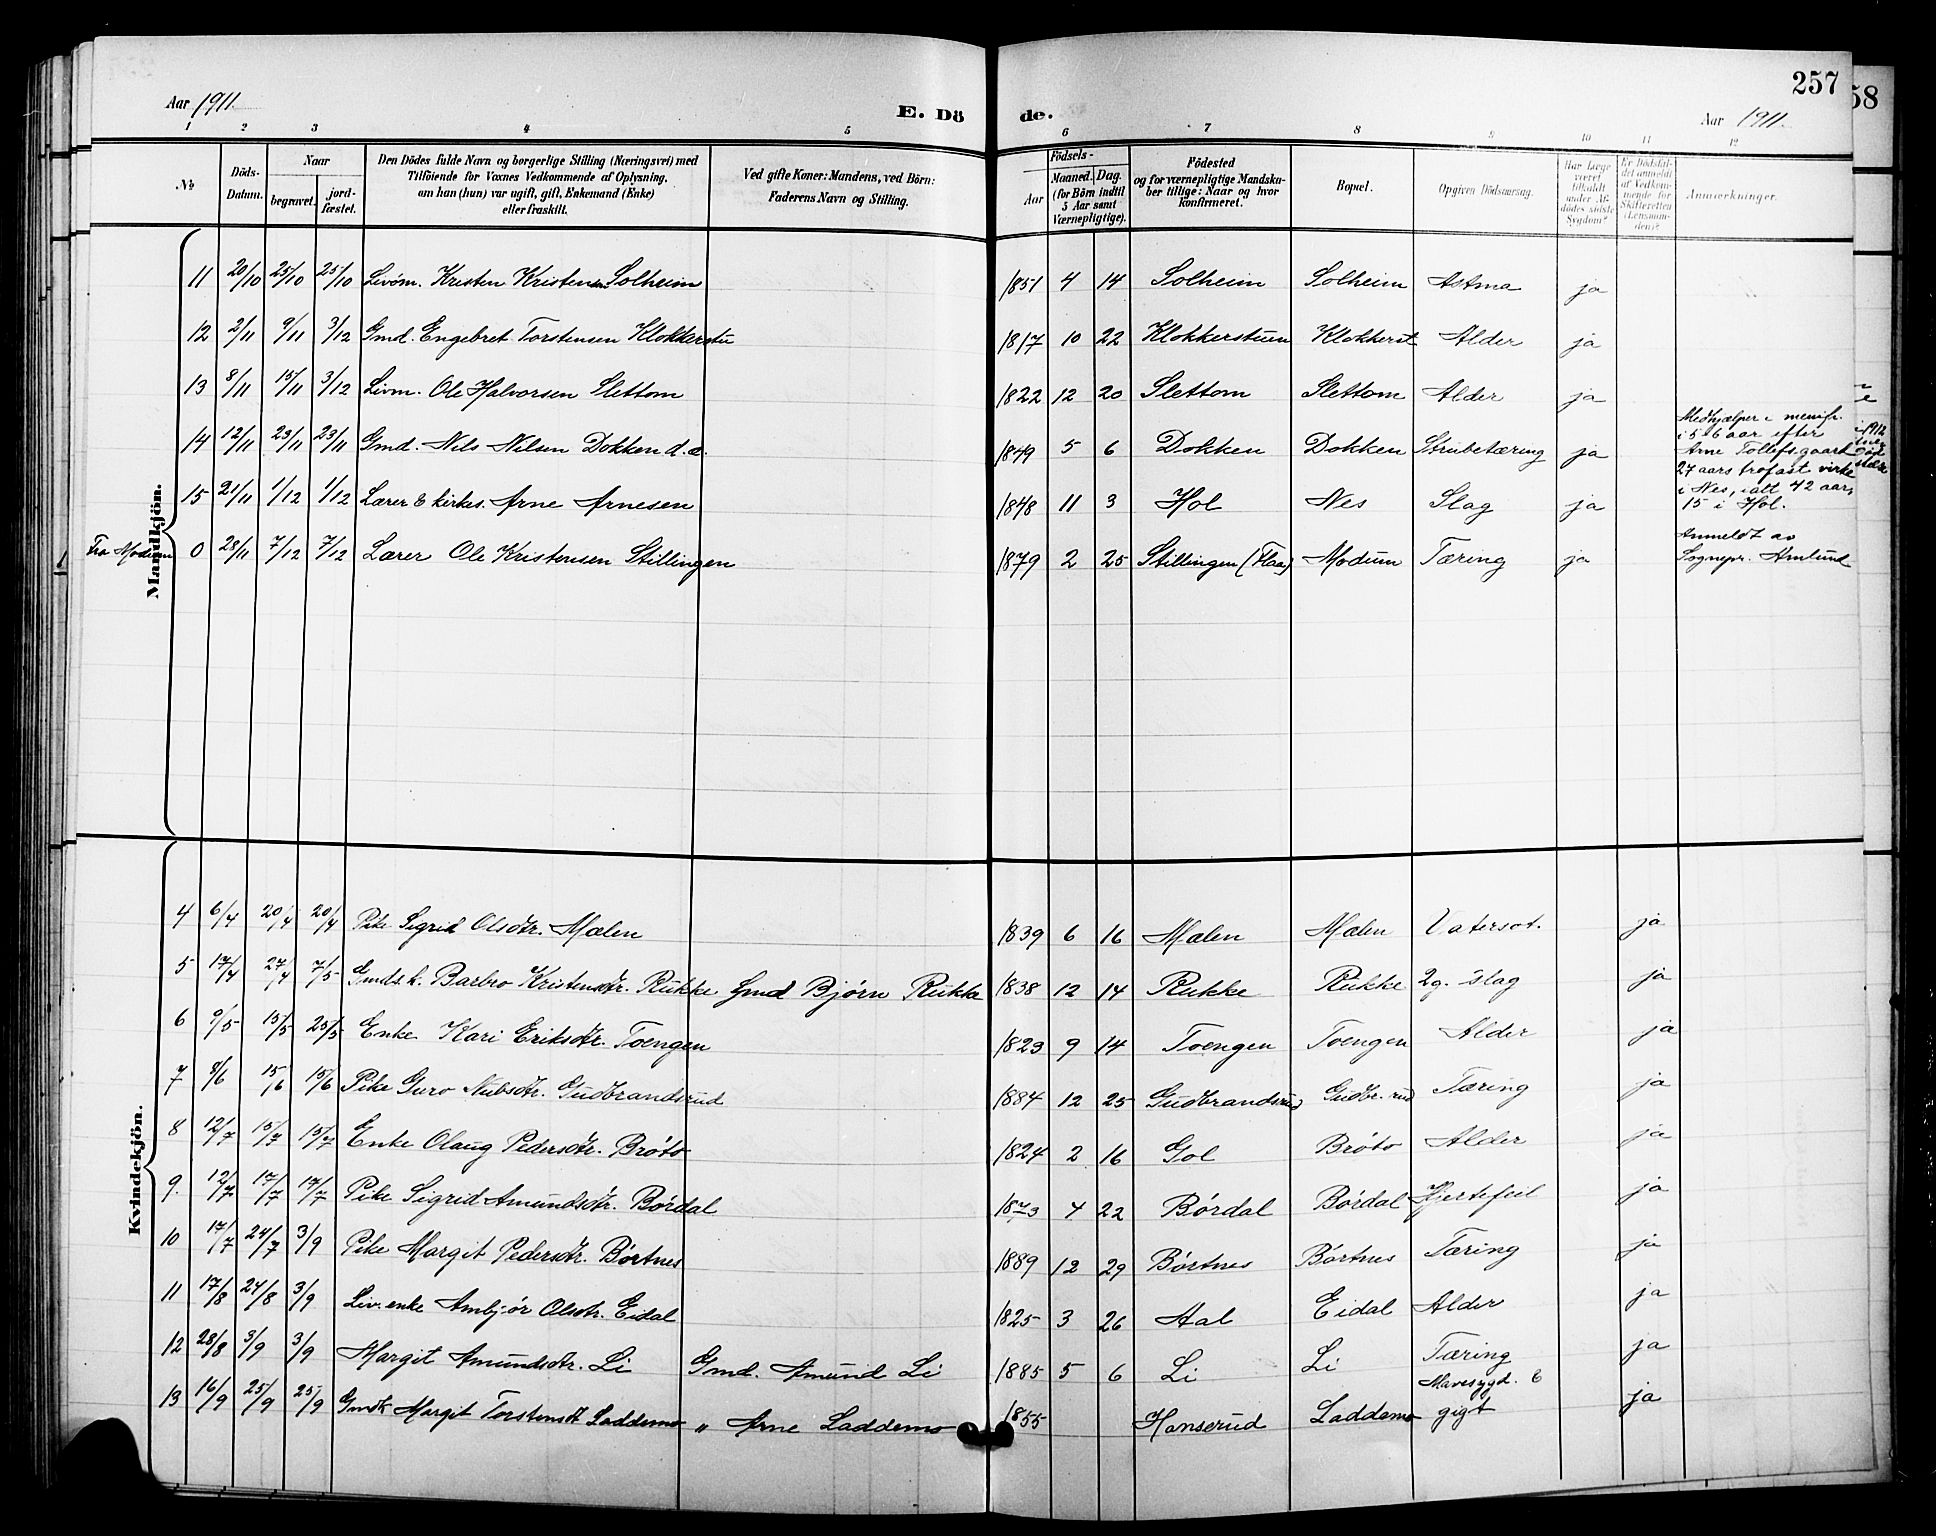 Aar 1911.
E. Dö
de.
257
58
Aar 1911.
1 2 3 4 5 6 7 8 9 10 11 12
No
Döds-
Datum.
Naar
begravet.
jord-
fæstet.
Den Dödes fulde Navn og borgerlige Stilling (Næringsvei) med
Tilföiende for Voxnes Vedkommende af Oplysning,
om han (hun) var ugift, gift, Enkemand (Enke)
eller fraskilt.
Ved gifte Koner: Mandens, ved Börn:
Faderens Navn og Stilling.
Födsels-
Aar
Maaned. Dag.
(for Börn indtil
5 Aar samt
Værnepligtige).
Födested
og for værnepligtige Mandska-
ber tillige: Naar og hvor
Konfirmeret.
Bopæl.
Opgiven Dödsaarsag.
Har Læge
været
tilkaldt
under Af-
dödes sidste
Sygdom?
Er Dödsfal-
det anmeldt
af Vedkom-
mende for
Skifteretten
(Lensman-
den)?
Anmærkninger.
Mandkjön.
11 20/10 25/10 25/10 Livöm. Kristen Kristensen Solheim 1851 4 14 Solheim Solheim Astma ja
12 2/11 9/11 3/12 Gmd. Engebret Torstensen Klokkerstu 1817 10 22 Klokkerstuen Klokkerst Alder ja
13 8/11 15/11 3/12 Livm. Ole Halvorsen Slettom 1822 12 20 Slettom Slettom Alder ja
14 12/11 23/11 23/11 Gmd. Nils Nilsen Dokken d.æ. 1849 5 6 Dokken Dokken Strubetæring ja
Medhjælper i menigh.
i 5-6 aar efter
Arne Tollefsgaard
15 21/11 1/12 1/12 Lærer & kirkes. Arne Arnesen 1848 11 3 Hol Nes Slag ja
27 aars trofast virke
i Nes, ialt 42 aar,
15 i Hol.
Fra Modum 0 28/11 7/12 7/12 Lærer Ole Kristensen Stillingen 1879 2 25 Stillingen (Flaa) Modum Tæring ja
Anmeldt av
Sognepr. Amlund
Kvindekjön.
4 6/4 20/4 20/4 Pike Sigrid Olsdtr. Mælen 1839 6 16 Mælen Mælen Vatersot. ja
5 17/4 27/4 7/5 Gmds.k. Barbro Kristensdtr. Rukke Gmd Björn Rukke 1838 12 14 Rukke Rukke 2g. slag ja
6 9/5 15/5 25/5 Enke Kari Eriksdtr. Toengen 1823 9 14 Toengen Toengen Alder ja
7 8/6 15/6 15/6 Pike Guro Nubsdtr. Gudbrandsrud 1884 12 25 Gudbrandsrud Gudbr.rud Tæring ja
8 12/7 15/7 15/7 Enke Olaug Pedersdtr. Bröto 1824 2 16 Gol Bröto Alder ja
9. 12/7 17/7 17/7 Pike Sigrid Amundsdtr. Bördal 1873 4 22 Bördal Bördal Hjertefeil ja
10 17/7 24/7 3/9 Pike Margit Pedersdtr. Börtnes 1889 12 29 Börtnes Börtnes Tæring ja
11 17/8 24/8 3/9 Liv.enke Ambjör Olsdtr. Eidal 1825 3 26 Aal Eidal Alder ja
12 28/8 3/9 3/9 Margit Amundsdtr. Li Gmd. Amund Li 1885 5 6 Li Li Tæring ja
13 16/9 25/9 25/9 Gmdk Margit Torstensdt Laddemo " Arne Laddemo 1855 Hanserud Laddemo Mavesygd. &
gigt ja